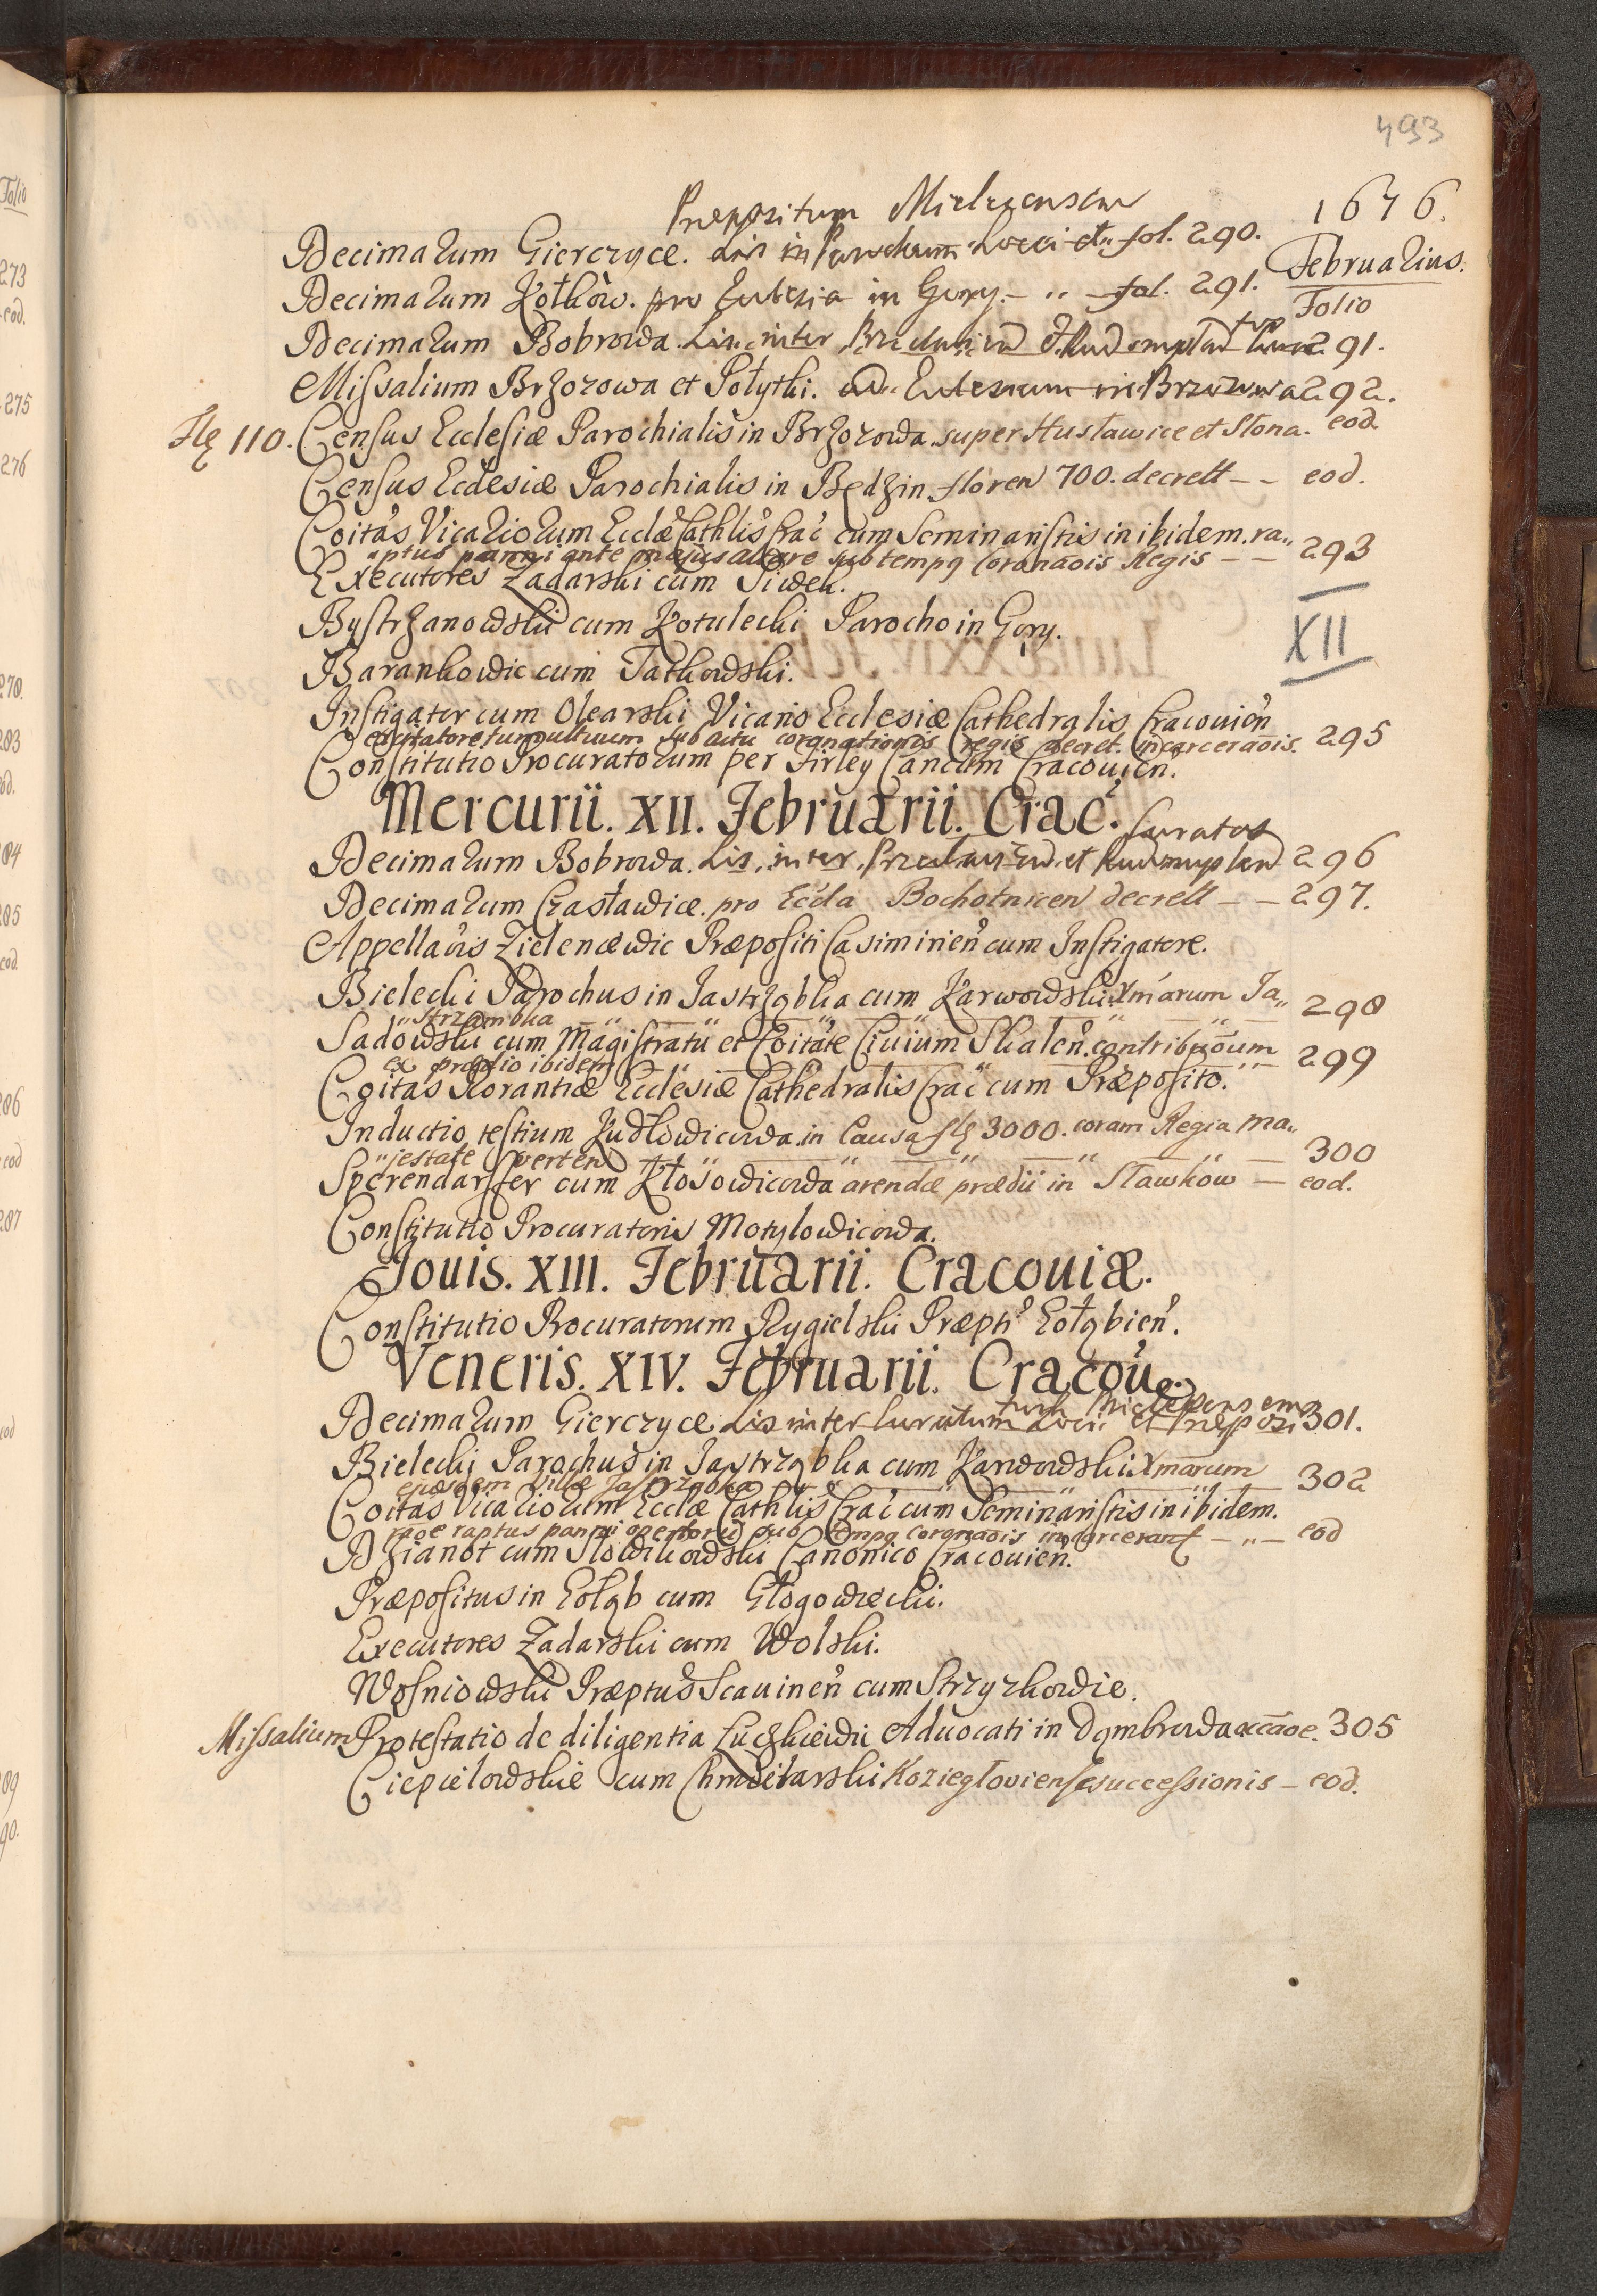 493
1676.
Præpositum Mielecensem
Decimarum Gierczyce. Lis in Parochum Loci et fol. 290.
Februarius.
Decimarum Kotków. pro Ecclesia in Gory. – „ – fol. 291.
Folio
Decimarum Bobrowa. Lis inter 291.
Missalium Brzozowa et Połytki. ad Ecclesiam in Brzozowa 292.
Census Ecclesiæ Parochialis in Brzozowa super Hustawice et Stona. eod.
110.
Census Ecclesiæ Parochialis in Będzin floren 700. decrett – – eod.
Coitas Vicariorum Ecclæ Cathlis Crac cum Seminaristis in ibidem. ra„
„ptus panni ante majus altare sub tempq Coronaōis Regis – – 293
Executores Zadarski cum Siwek.
XII
Bystrzanowski cum Kotulecki Parocho in Gory.
Barankowic cum Tatkowski.
Instigator cum Olearski Vicario Ecclesiæ Cathedralis Cracouien
excitatore tumultuum sub actu coronationis regis decret. incarceraōis. 295
Constitutio Procuratorum per Firley Cancum Cracouien.
Mercurii. XII. Februarii. Crac.
Curatos
Decimarum Bobrowa. Lis. inter. et 296
Decimarum Czasławice. pro Eccla Bochotnicen decrett – – 297.
Appellaōis Zielencewic Præpositi Casimirien cum Instigatore.
Bielecki Parochus in Jastrząbka cum Karwowski Xmarum Ja„ 298
„strzambka
Sadowski cum Magistratu et Coitate Ciuium Skalen. contribuōum
ex prædio ibidem 299
Coitas Rorantiæ Ecclesiæ Cathedralis Crac cum Præposito.
Inductio testium Kudłowicowa in Causa flo 3000. coram Regia Ma„
„jestate verten 300
Sperendarffer cum Kłosowicowa arendæ prædii in Sławków – eod.
Constitutio Procuratoris Motylowicowa.
Jouis. XIII. Februarii. Cracouiæ.
Constitutio Procuratorum Rygielski Præpti Gołąbien.
Veneris. XIV. Februarii. Cracou.
tum Mielecensem
Decimarum Gierczyce Lis inter Curatum Loci et Præposi 301.
Bielecki Parochus in Jastrząbka cum Karwowski Xmarum
ejusdem Villæ Jastrząbka 302
Coitas Vicariorum Ecclæ Cathlis Crac cum Seminaristis in ibidem.
raōe raptus panni sub tempq coronaōis – „ – eod
Dzianot cum Słowikowski Canonico Cracouien.
Præpositus in Gołąb cum Głogowiecki.
Executores Zadarski cum Wolski.
Wosniowski Præptus Scauinen cum Strzyzkowic.
Missalium Protestatio de diligentia Łuczkiewic Aduocati in Dąmbrowa 305
Ciepielowskie cum Chmielarski Koziegłoviensi successionis – eod.